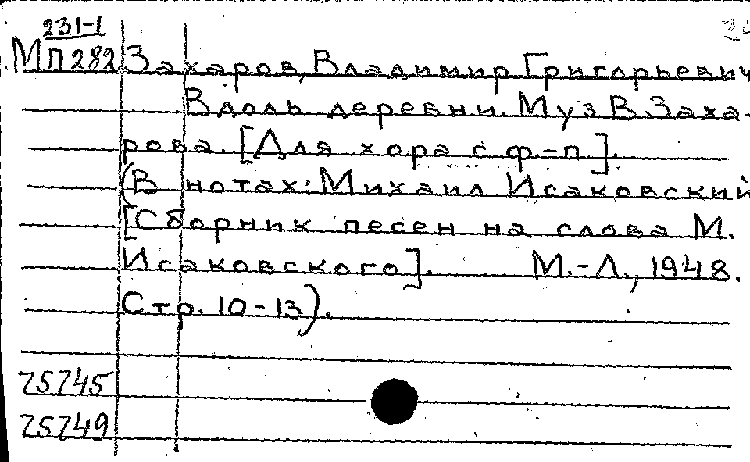 231-1
МП282 Захаров, Владимир Григорьевич
Вдоль деревни. Муз В. Заха-
рова. [Для хора с ф-п].
(В нотах: Михаил Исаковский
[Сборник песен на слова М.
Исаковского]. М.-Л., 1948.
Стр. 10-13).
75745
75749